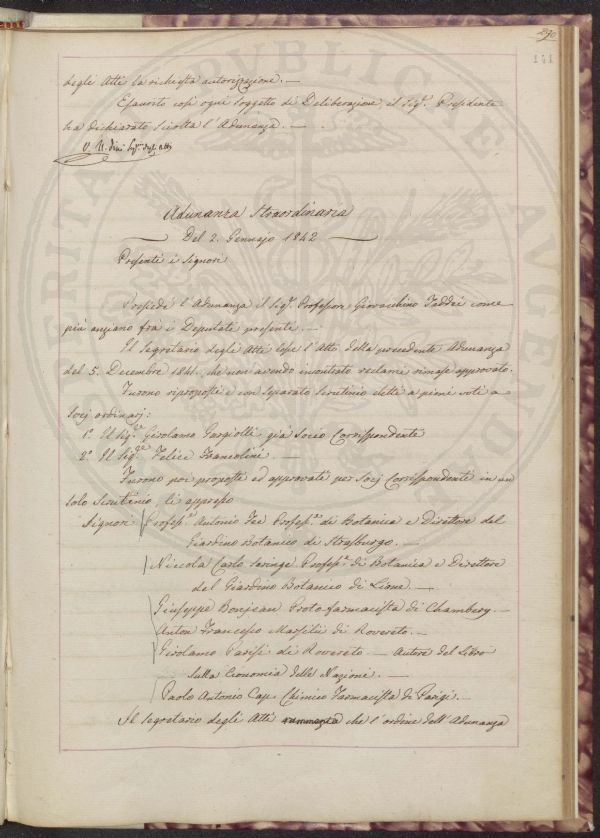 290
141
degli Atti la richiesta autorizzazione. —
Esaurito così ogni soggetto di Deliberazione, il Sig.r Presidente
ha dichiarato sciolta l'Adunanza. —
Adunanza Straordinaria
Del 2. Gennajo 1842
Presenti i Signori
Presiedè l'Adunanza il Sig.r Professore Giovacchino Taddei come
più anziano fra i Deputati presenti. —
Il Segretario degli Atti lesse l'Atto della precedente Adunanza
del 5. Decembre 1841. che non avendo incontrato reclami rimase approvato.
Furono riproposti e con separato scrutinio eletti a pieni voti a
Socj ordinarj:
1.° Il Sig.re Girolamo Gargiolli già Socio Corrispondente
2.° Il Sig.re Felice Francolini. —
Furono poi proposti ed approvati per Socj Corrispondenti in un
solo Scrutinio li appresso
Signori Profess.e Antonio Fée Profess.e di Botanica e Direttore del
Giardino Botanico di Strasburgo. —
Niccola Carlo Seringe Profess.e di Botanica e Direttore
del Giardino Botanico di Lione. —
Giuseppe Bonjean Protofarmacista di Chambery. —
Anton Francesco Marsilii di Rovereto. —
Girolamo Parisi di Rovereto — Autore del Libro
sulla Economia delle Nazioni. —
Paolo Antonio Cap. Chimico Farmacista di Parigi. —
Il Segretario degli Atti rammenta che l'ordine dell'Adunanza